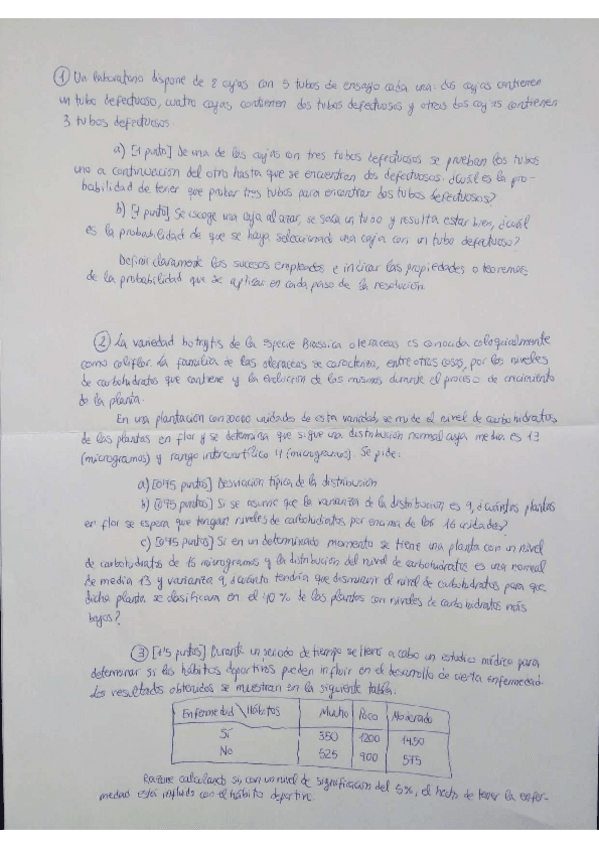 ① Un laboratorio dispone de 8 cajas con 5 tubos de ensayo cada una: dos cajas contienen
un tubo defectuoso, cuatro cajas contienen dos tubos defectuosos y otras dos cajas contienen
3 tubos defectuosos.
a) [1 punto] De una de las cajas con tres tubos defectuosos se prueban los tubos
uno a continuación del otro hasta que se encuentran dos defectuosos. ¿Cuál es la pro-
babilidad de tener que probar tres tubos para encontrar dos tubos defectuosos?
b) [1 punto] Se escoge una caja al azar, se saca un tubo y resulta estar bien, ¿cuál
es la probabilidad de que se haya seleccionado una caja con un tubo defectuoso?
Definir claramente los sucesos empleados e indicar las propiedades o teoremas
de la probabilidad que se aplican en cada paso de la resolución.
② La variedad botrytis de la especie Brassica oleraceas es conocida coloquialmente
como coliflor. La familia de las oleraceas se caracteriza, entre otras cosas, por los niveles
de carbohidratos que contiene y la evolución de los mismos durante el proceso de crecimiento
de la planta.
En una plantación con 20000 unidades de esta variedad, se mide el nivel de carbohidratos
de las plantas en flor y se determina que sigue una distribución normal cuya media es 13
(microgramos) y rango intercuartílico 4 (microgramos). Se pide:
a) [0'45 puntos] Desviación típica de la distribución
b) [0'45 puntos] Si se asume que la varianza de la distribución es 9, ¿cuántas plantas
en flor se espera que tengan niveles de carbohidratos por encima de los 16 unidades?
c) [0'45 puntos] Si en un determinado momento se tiene una planta con un nivel
de carbohidratos de 15 microgramos y la distribución del nivel de carbohidratos es una normal
de media 13 y varianza 9, ¿cuánto tendría que disminuir el nivel de carbohidratos para que
dicha planta se clasificara en el 40 % de las plantas con niveles de carbohidratos más
bajos?
③ [1'5 puntos] Durante un periodo de tiempo se llevó a cabo un estudio médico para
determinar si los hábitos deportivos pueden influir en el desarrollo de cierta enfermedad.
Los resultados obtenidos se muestran en la siguiente tabla:
Enfermedad \ Hábitos Mucho Poco Moderado
Sí 350 1200 1450
No 525 900 575
Razone calculando si, con un nivel de significación del 5%, el hecho de tener la enfer-
medad está influido con el hábito deportivo.